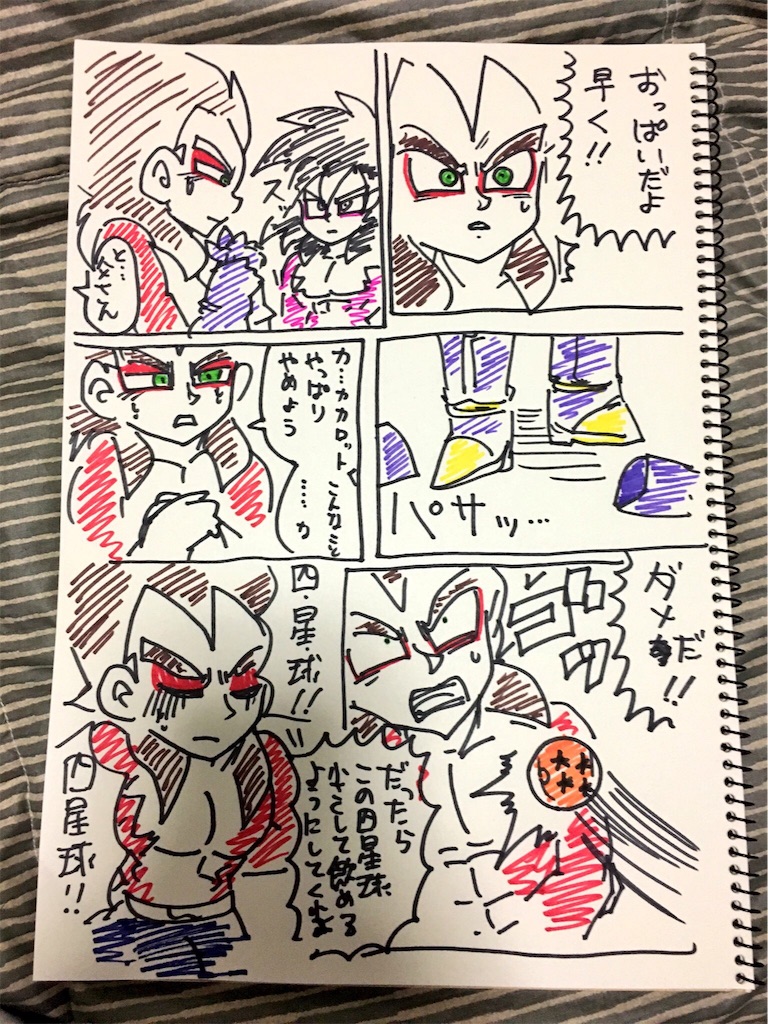 おっぱいだよ
早く!!
スッ
と…
父さん
パサッ…
カ…カカロットこんなこと
やっぱり
やめよう
……カ
ダメだ!!
ゴゴッ
だったら
この四星球
小さくして飲める
ようにしてくれよ
四・星・球!!
四星球!!